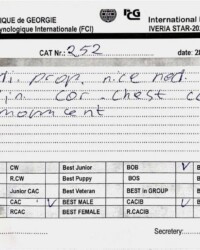 IQUE de GEORGIE
ynologique Internationale (FCI)
International
IVERIA STAR-20
CAT Nr.: 252
date: 2
prop. nice
in cor. chest
CW Best Junior BOB V
R.CW Best Puppy BOS
Junior CAC Best Veteran BEST in GROUP
CAC V BEST MALE CACIB V
RCAC BEST FEMALE R.CACIB
Secretary: